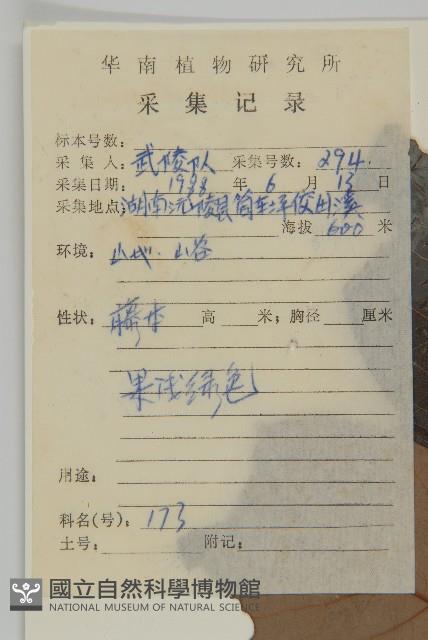 华南植物研究所
采集记录
标本号数：
采集人：武陵队 采集号数：294.
采集日期：1988 年 6 月 13 日
采集地点：湖南沅陵县筒车坪
海拔 600 米
环境：山地.山谷
性状：藤本 高 米；胸径 厘米
果浅绿色
用途：
科名(号)：173
土号： 附记：
國立自然科學博物館
NATIONAL MUSEUM OF NATURAL SCIENCE